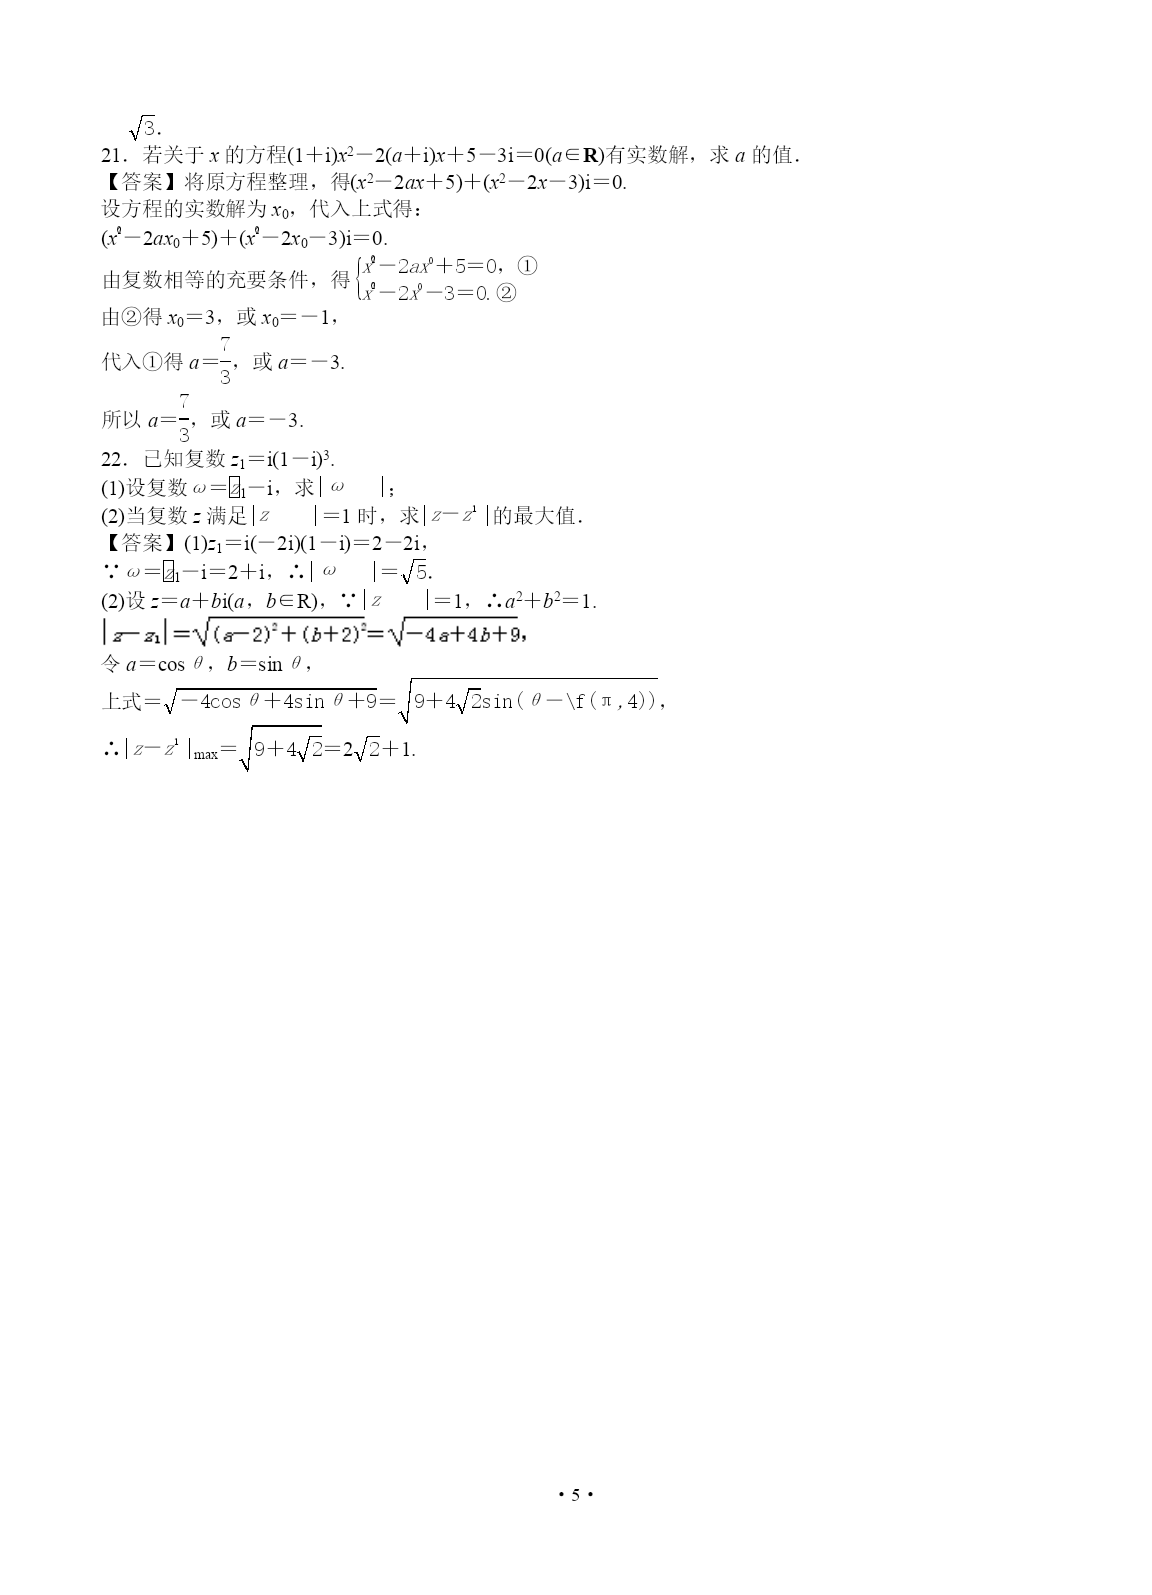 √3.
21．若关于 x 的方程(1＋i)x²－2(a＋i)x＋5－3i＝0(a∈R)有实数解，求 a 的值．
【答案】将原方程整理，得(x²－2ax＋5)＋(x²－2x－3)i＝0.
设方程的实数解为 x₀，代入上式得：
(x₀²－2ax₀＋5)＋(x₀²－2x₀－3)i＝0.
由复数相等的充要条件，得{x₀²－2ax⁰＋5＝0，①
x₀²－2x⁰－3＝0.②
由②得 x₀＝3，或 x₀＝－1，
代入①得 a＝7/3，或 a＝－3.
所以 a＝7/3，或 a＝－3.
22．已知复数 z₁＝i(1－i)³.
(1)设复数 ω＝z₁－i，求|ω |；
(2)当复数 z 满足|z |＝1 时，求|z－z¹ |的最大值．
【答案】(1)z₁＝i(－2i)(1－i)＝2－2i，
∵ω＝z₁－i＝2＋i，∴|ω |＝√5.
(2)设 z＝a＋bi(a，b∈R)，∵|z |＝1，∴a²＋b²＝1.
|z－z₁|＝√(a－2)²＋(b＋2)²＝√－4a＋4b＋9，
令 a＝cos θ，b＝sin θ，
上式＝√－4cos θ＋4sin θ＋9＝√9＋4√2sin(θ－\f(π,4))，
∴|z－z¹ |max＝√9＋4√2＝2√2＋1.
·5·